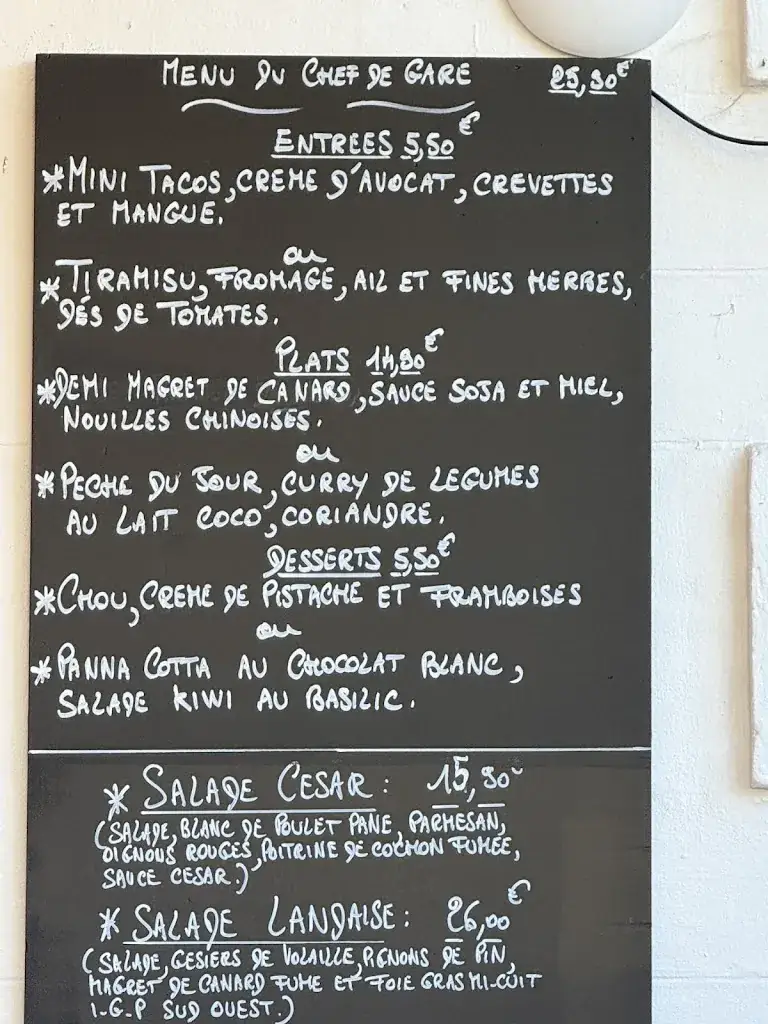 MENU DU CHEF DE GARE 25,90€
ENTREES 5,50€
*MINI TACOS, CREME D'AVOCAT, CREVETTES
ET MANGUE.
ou
*TIRAMISU, FROMAGE, AIL ET FINES HERBES,
DÉS DE TOMATES.
PLATS 14,90€
*DEMI MAGRET DE CANARD, SAUCE SOJA ET MIEL,
NOUILLES CHINOISES.
ou
*PECHE DU JOUR, CURRY DE LEGUMES
AU LAIT COCO, CORIANDRE.
DESSERTS 5,50€
*CHOU, CREME DE PISTACHE ET FRAMBOISES
ou
*PANNA COTTA AU CHOCOLAT BLANC,
SALADE KIWI AU BASILIC.
* SALADE CESAR : 15,90
(SALADE, BLANC DE POULET PANE, PARMESAN,
OIGNONS ROUGES, POITRINE DE COCHON FUMEE,
SAUCE CESAR.)
* SALADE LANDAISE : 26,00€
(SALADE, GESIERS DE VOLAILLE, PIGNONS DE PIN,
MAGRET DE CANARD FUME ET FOIE GRAS MI-CUIT
I-G-P SUD OUEST.)